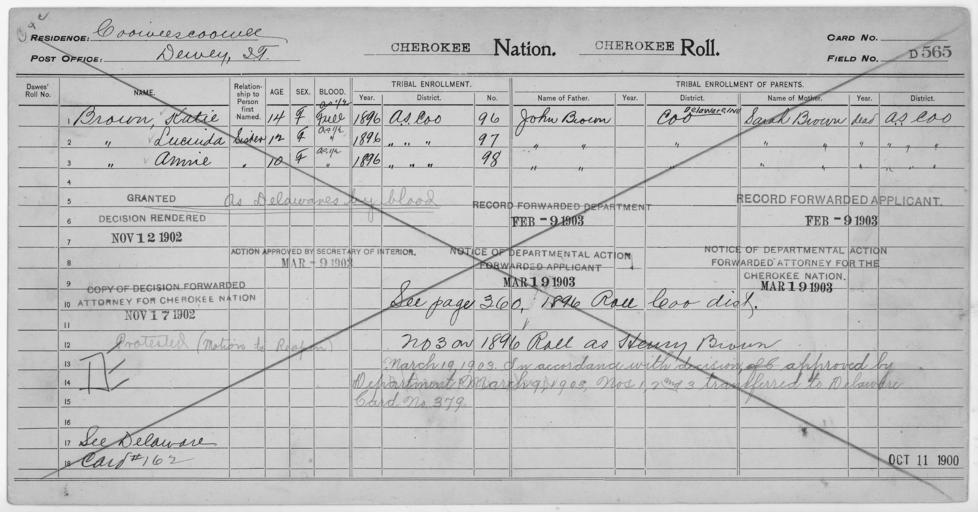 RESIDENCE: Coowees­coowee
POST OFFICE: Dewey, I.T.
CHEROKEE Nation. CHEROKEE Roll.
CARD NO.
FIELD NO. D 565
Dawes' Roll No. NAME. Relationship to Person first Named. AGE SEX. BLOOD. TRIBAL ENROLLMENT. TRIBAL ENROLLMENT OF PARENTS.
Year. District. No. Name of Father. Year. District. Name of Mother. Year. District.
1 Brown, Katie 14 F Full 1896 as. Coo 96 John Brown Coo Sarah Brown dead as. Coo
2 " Lucinda Sister 12 F " 1896 " " " 97 " " " " " " " "
3 " Annie " 10 F " 1896 " " " 98 " " " " " " " "
4
5 GRANTED as Delawares by blood RECORD FORWARDED DEPARTMENT RECORD FORWARDED APPLICANT.
6 DECISION RENDERED FEB -9 1903 FEB -9 1903
7 NOV 12 1902
8 ACTION APPROVED BY SECRETARY OF INTERIOR. NOTICE OF DEPARTMENTAL ACTION NOTICE OF DEPARTMENTAL ACTION
MAR -9 1903 FORWARDED APPLICANT FORWARDED ATTORNEY FOR THE
9 COPY OF DECISION FORWARDED MAR 19 1903 CHEROKEE NATION. MAR 19 1903
10 ATTORNEY FOR CHEROKEE NATION See page 360, 1896 Roll Coo dist.
11 NOV 17 1902
12 Protested (Motion to Reopen) No 3 on 1896 Roll as Henry Brown
13 March 19, 1903. In accordance with decision of approved by
14 Department March 9, 1903, Nos 1, 2 and 3 transferred to Delaware
15 Card No. 379.
16
17 See Delaware
18 Card #162 OCT 11 1900